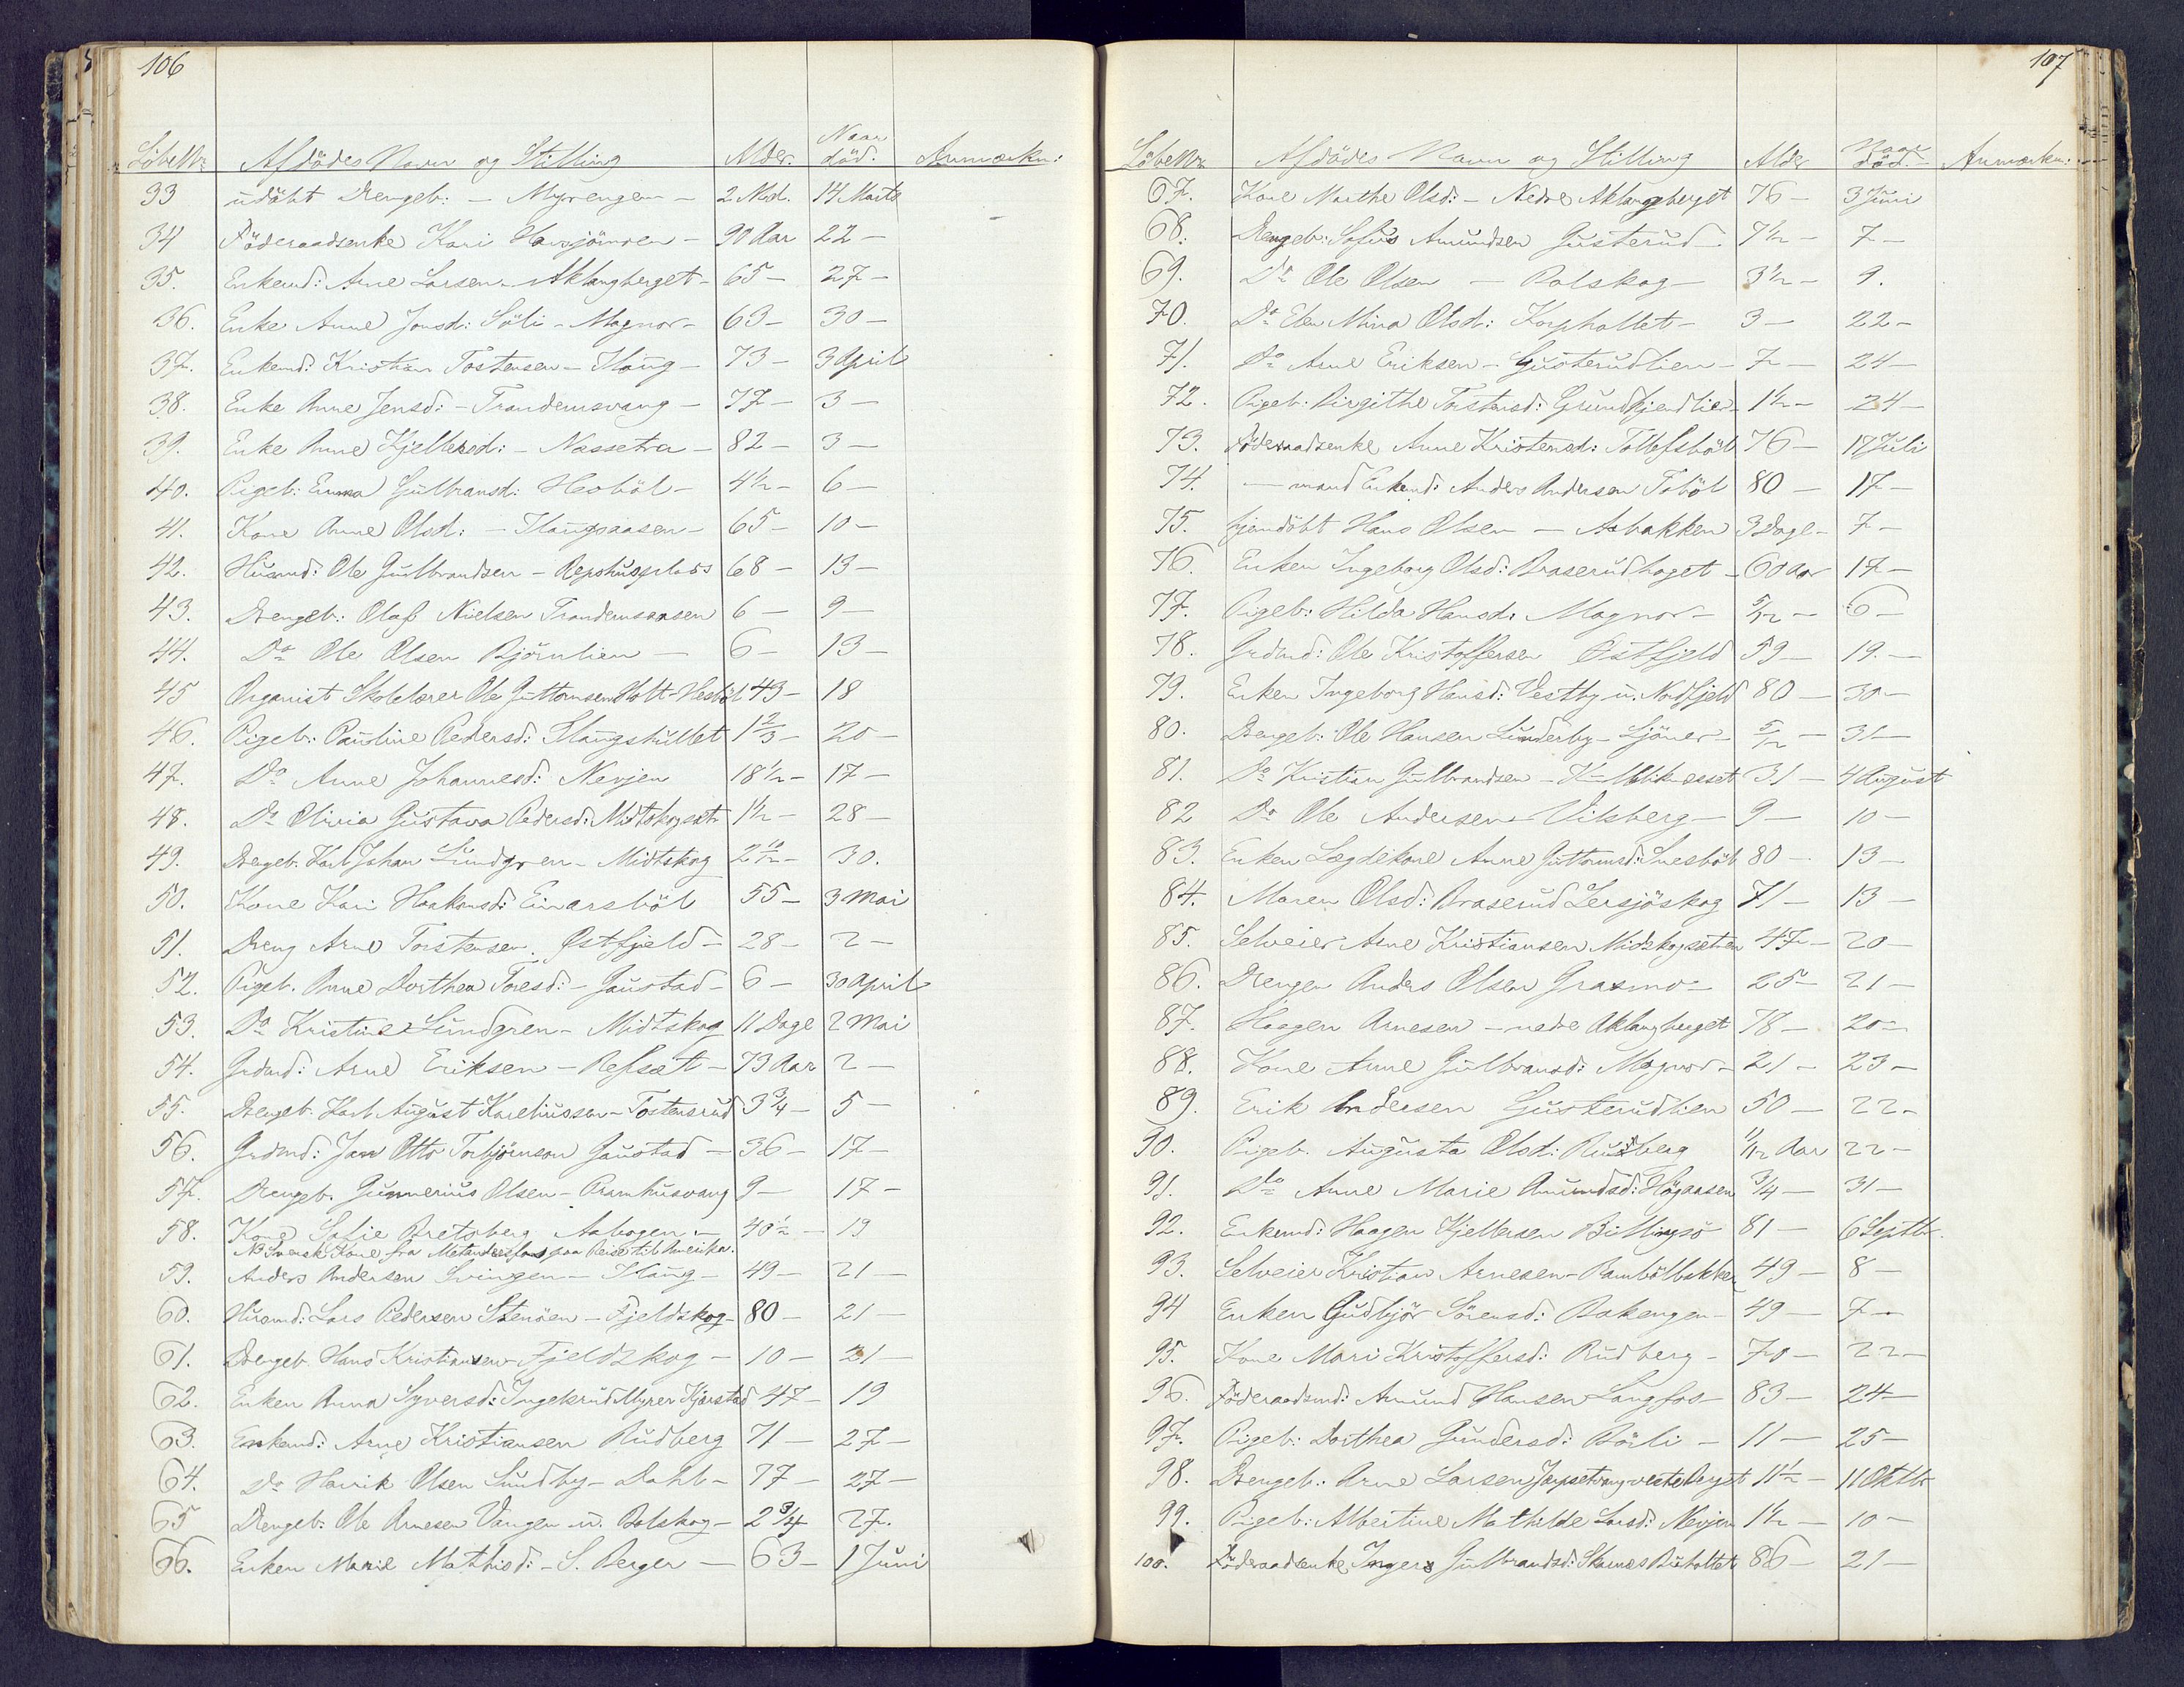 106
LöbeNr: Afdödes Navn og Stilling Alder. Naar död. Anmærkn:
33 udöbt Drengeb: - Myrengen - 2 Md. 14 Marts
34 Föderaadsenke Kari Hansjörnsen - 90 Aar 22 -
35. Enkemd: Arne Larsen - Aklangberget - 65 - 27 -
36. Enke Anne Jonsd: Söli - Magnor - 63 - 30 -
37. Enkemd: Kristian Tostensen - Haug - 73 - 3 April
38. Enke Anne Jensd: - Trandemsvang - 77 - 3 -
39. Enke Anne Kjellersd: - Nassetra - 82 - 3 -
40. Pigeb: Emma Gulbransd: Hesböl - 4 1/2 - 6 -
41. Kone Anne Olsd: - Haugsaasen - 65 - 10 -
42. Husmd: Ole Gulbrandsen - Repshusplads 68 - 13 -
43. Drengeb: Olaf Nielsen Trandemsaasen 6 - 9 -
44. Do Ole Olsen Björnlien - 6 - 13 -
45 Organist Skolelærer Ole Guttormsen Holt - Hesböl 43 - 18
46. Pigeb: Pauline Pedersd: Haugshullet 1 2/3 - 20 -
47. Do Anne Johannesd: Nevjen 18 1/2 - 17 -
48. Do Olivia Gustava Pedersd: Midtskogsætr 1 1/2 - 28 -
49. Drengeb: Karl Johan Lundgren - Midtskog 2 10/12 - 30.
50. Kone Kari Haakonsd: Einarsböl 55 - 3 Mai
51. Dreng Arne Torstensen. Östfjeld - 28 - 2 -
52. Pigeb. Anne Dorthea Toresd: - Gaustad - 6 - 30 April
53. Do Kristine Lundgren - Midtskog 11 Dage 2 Mai
54. Grdmd: Arne Eriksen - Refsæt - 73 Aar 2 -
55. Drengeb. Karl August Kareliussen - Tostensrud 3 3/4 - 5 -
56. Grdmd: Jan Otto Torbjörnsen Gaustad - 36 - 17 -
57. Drengeb. Gunnerius Olsen - Pramhusvang 9 - 17 -
58. Kone Sofie Bretsberg Aabogen - 40 1/2 - 19
NB Svensk Kone fra paa Reise til Amerika.
59. Anders Andersen Svingen - Haug - 49 - 21 -
60. Husmd: Lars Pedersen Stenöen - Fjeldskog - 80 - 21
61. Drengeb. Hans Kristiansen - Fjeldskog - 10 - 21 -
62. Enken Anna Syversd: Ingelsrud Myren Kjerstad 47 - 19
63. Enkemd: Arne Kristiansen Rudberg 71 - 27 -
64. Do Henrik Olsen Sundby - Dahl - 77 - 27 -
65 Drengeb: Ole Arnesen Vangen u. Bolskog - 2 3/4 27.
66. Enken Marie Mathisd: - S. Berger - 63 - 1 Juni
107
LöbeNr: Afdödes Navn og Stilling Alder Naar död. Anmærkn:
67. Kone Marthe Olsd: - Nedre Aklangberget 76 - 3 Juni
68. Drengeb: Sofus Amundsen Gusterud - 7 1/2 - 7 -
69. Do Ole Olsen - Bolskog - 3 1/2 - 9.
70. Do Elen Mina Olsd: Korpholtet - 3 - 22 -
71. Do Arne Eriksen - Gusterudlien - 7 - 24 -
72. Pigeb: Birgithe Torstensd: Grundtjendlien 1 1/2 - 24 -
73. Föderaadsenke Anne Kristensd: Tollefsböl 76 - 17 Juli
74. - mand Enkemd: Anders Andersen Toböl 80 - 17 -
75. hjemdöbt Hans Olsen - Asbakken 3 Dage - 7 -
76. Enken Ingeborg Olsd: Braserudhoget - 60 Aar 17 -
77. Pigeb: Hilda Hansd: Magnor - 5/12 - 6 -
78. Grdmd: Ole Kristoffersen Östfjeld 59 - 19. -
79. Enken Ingeborg Hansd: Vestby u. Nordfjeld 80 - 30 -
80. Drengeb: Ole Hansen Lunderby - Sjöner - 5/12 - 31 -
81. Do Kristian Gulbrandsen - 31 - 4 August
82 Do Ole Andersen Vilsberg - 9 - 10 -
83. Enken Lægdekone Anne Guttormsd: Snesböl 80 - 13 -
84. Maren Olsd: Braserud Lersjöskog 71 - 13 -
85. Selveier Arne Kristiansen Midskogsæteren 47 - 20 -
86. Drengen Anders Olsen Grasmo - 25 - 21 -
87. Haagen Arnesen - nedre Aklangberget 78 - 20 -
88. Kone Anne Gulbransd: Magnor - 21 - 23 -
89. Erik Andersen Gusterudlien 50 - 22 -
90. Pigeb. Augusta Olsd: Rudberg 1/12 Aar 22 -
91. Do Anne Marie Amundsd: Högaasen 3/4 - 31 -
92. Enkemd: Haagen Kjellersen Billingsö 81 - 6 Septbr.
93. Selveier Kristian Arnesen - Rambölbakken 49 - 8 -
94 Enken Gudbjör Sörensd: Bakengen - 49 - 7 -
95. Kone Mari Kristoffersd: Rudberg - 70 - 22 -
96. Föderaadsmd: Amund Hansen Langfos - 83 - 24 -
97. Pigeb: Dorthea Gundersd: Börli - 11 - 25 -
98. Drengeb: Arne Larsen Jarpsetvang vestre Berget 11 1/2 - 11 Oktbr
99. Pigeb: Albertine Mathilde Larsd: Nevjen 1 1/2 - 10 -
100. Föderaadsenke Inger Gulbrandsd: Skarnes Buholtet 86 - 21 -